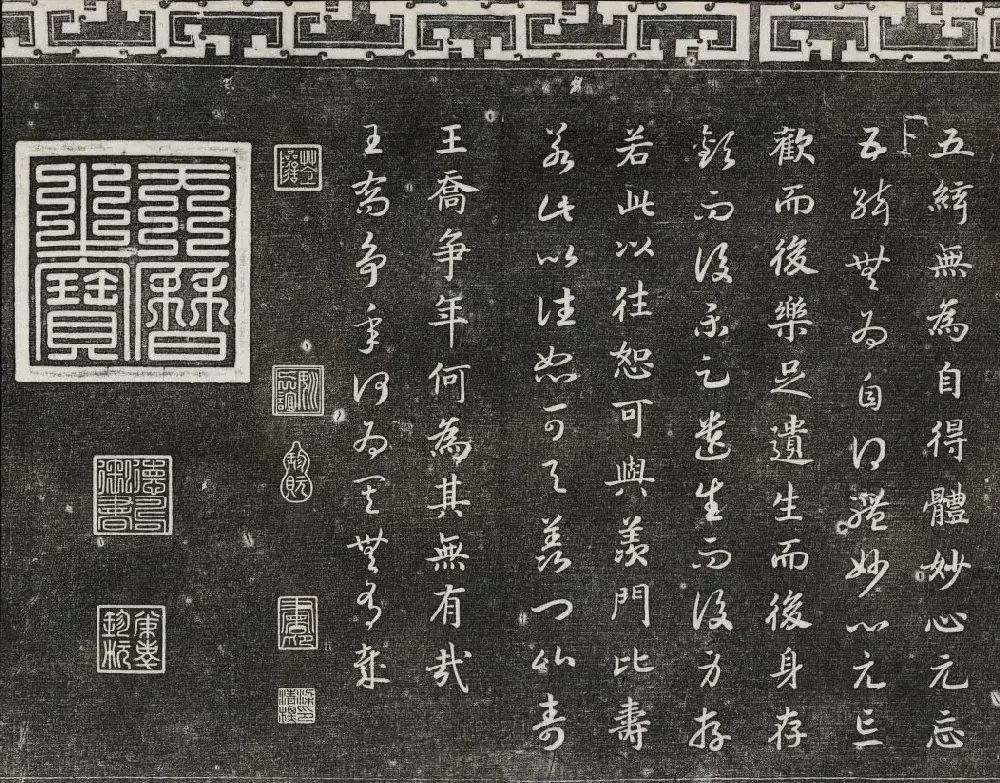 五絃無為自得體妙心元忘
五絃無為自得體妙心元忘
歡而後樂足遺生而後身存
歡而後樂足遺生而後身存
若此以往恕可與羨門比壽
若此以往恕可與羨門比壽
王喬爭年何為其無有哉
王喬爭年何為其無有哉